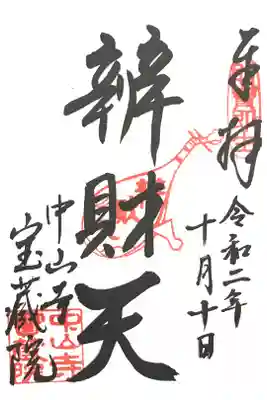 奉拝
令和二年
十月十日
辨財天
中山寺
宝蔵院